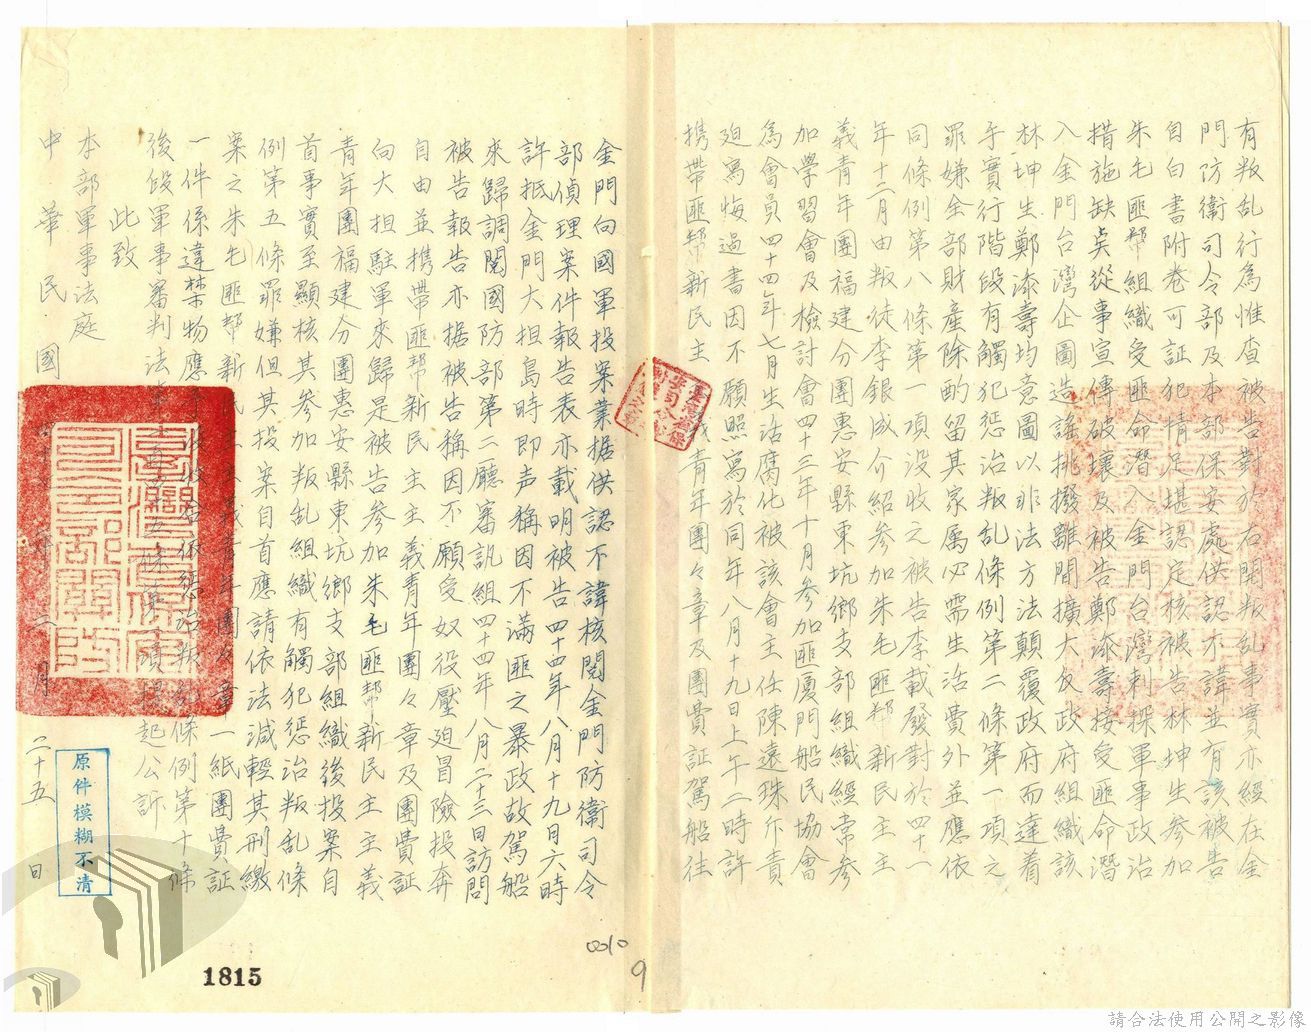 有叛乱行為惟查被告對於右開叛乱事實亦經在金
門防衛司令部及本部保安處供認不諱並有該被告
自白書附卷可証犯情足堪認定核被告林坤生參加
朱毛匪幫組織受匪命潛入金門台灣刺探軍事政治
措施缺点從事宣傳破壞及被告鄭添壽接受匪命潛
入金門台灣企圖造謠挑撥離間擴大反政府組織該
林坤生鄭添壽均意圖以非法方法顛覆政府而達着
手實行階段有觸犯惩治叛乱條例第二條第一項之
罪嫌全部財產除酌留其家屬必需生活費外並應依
同條例第八條第一項沒收之被告李載發對於四十一
年十二月由叛徒李銀成介紹參加朱毛匪幫新民主主
義青年團福建分團惠安縣東坑鄉支部組織經常參
加学習會及檢討會四十三年十月參加匪廈門船民協會
為會員四十四年七月生活腐化被該會主任陳遠珠斥責
廹寫悔過書因不願照寫於同年八月十九日上午二時許
携帶匪幫新民主義青年團々章及團費証駕船往
金門向國軍投案業据供認不諱核閱金門防衛司令
部偵理案件報告表亦載明被告四十四年八月十九日六時
許抵金門大担島時即声稱因不滿匪之暴政故駕船
來歸調閱國防部第二廳審訊組四十四年八月二十三日訪問
被告報告亦据被告稱因不願受奴役壓廹冒險投奔
自由並携帶匪幫新民主主義青年團々章及團費証
向大担駐軍來歸是被告參加朱毛匪幫新民主主義
青年團福建分團惠安縣東坑鄉支部組織後投案自
首事實至顯核其參加叛乱組織有觸犯惩治叛乱條
例第五條罪嫌但其投案自首應請依法減輕其刑繳
案之朱毛匪幫新民主主義青年團々章一紙團費証
一件係違禁物應予沒收合依惩治叛乱條例第十條
後段軍事審判法第一百四十五條第一項提起公訴
此致
本部軍事法庭
中華民國
年
月二十五日
原件模糊不清
0010
9
1815
請合法使用公開之影像